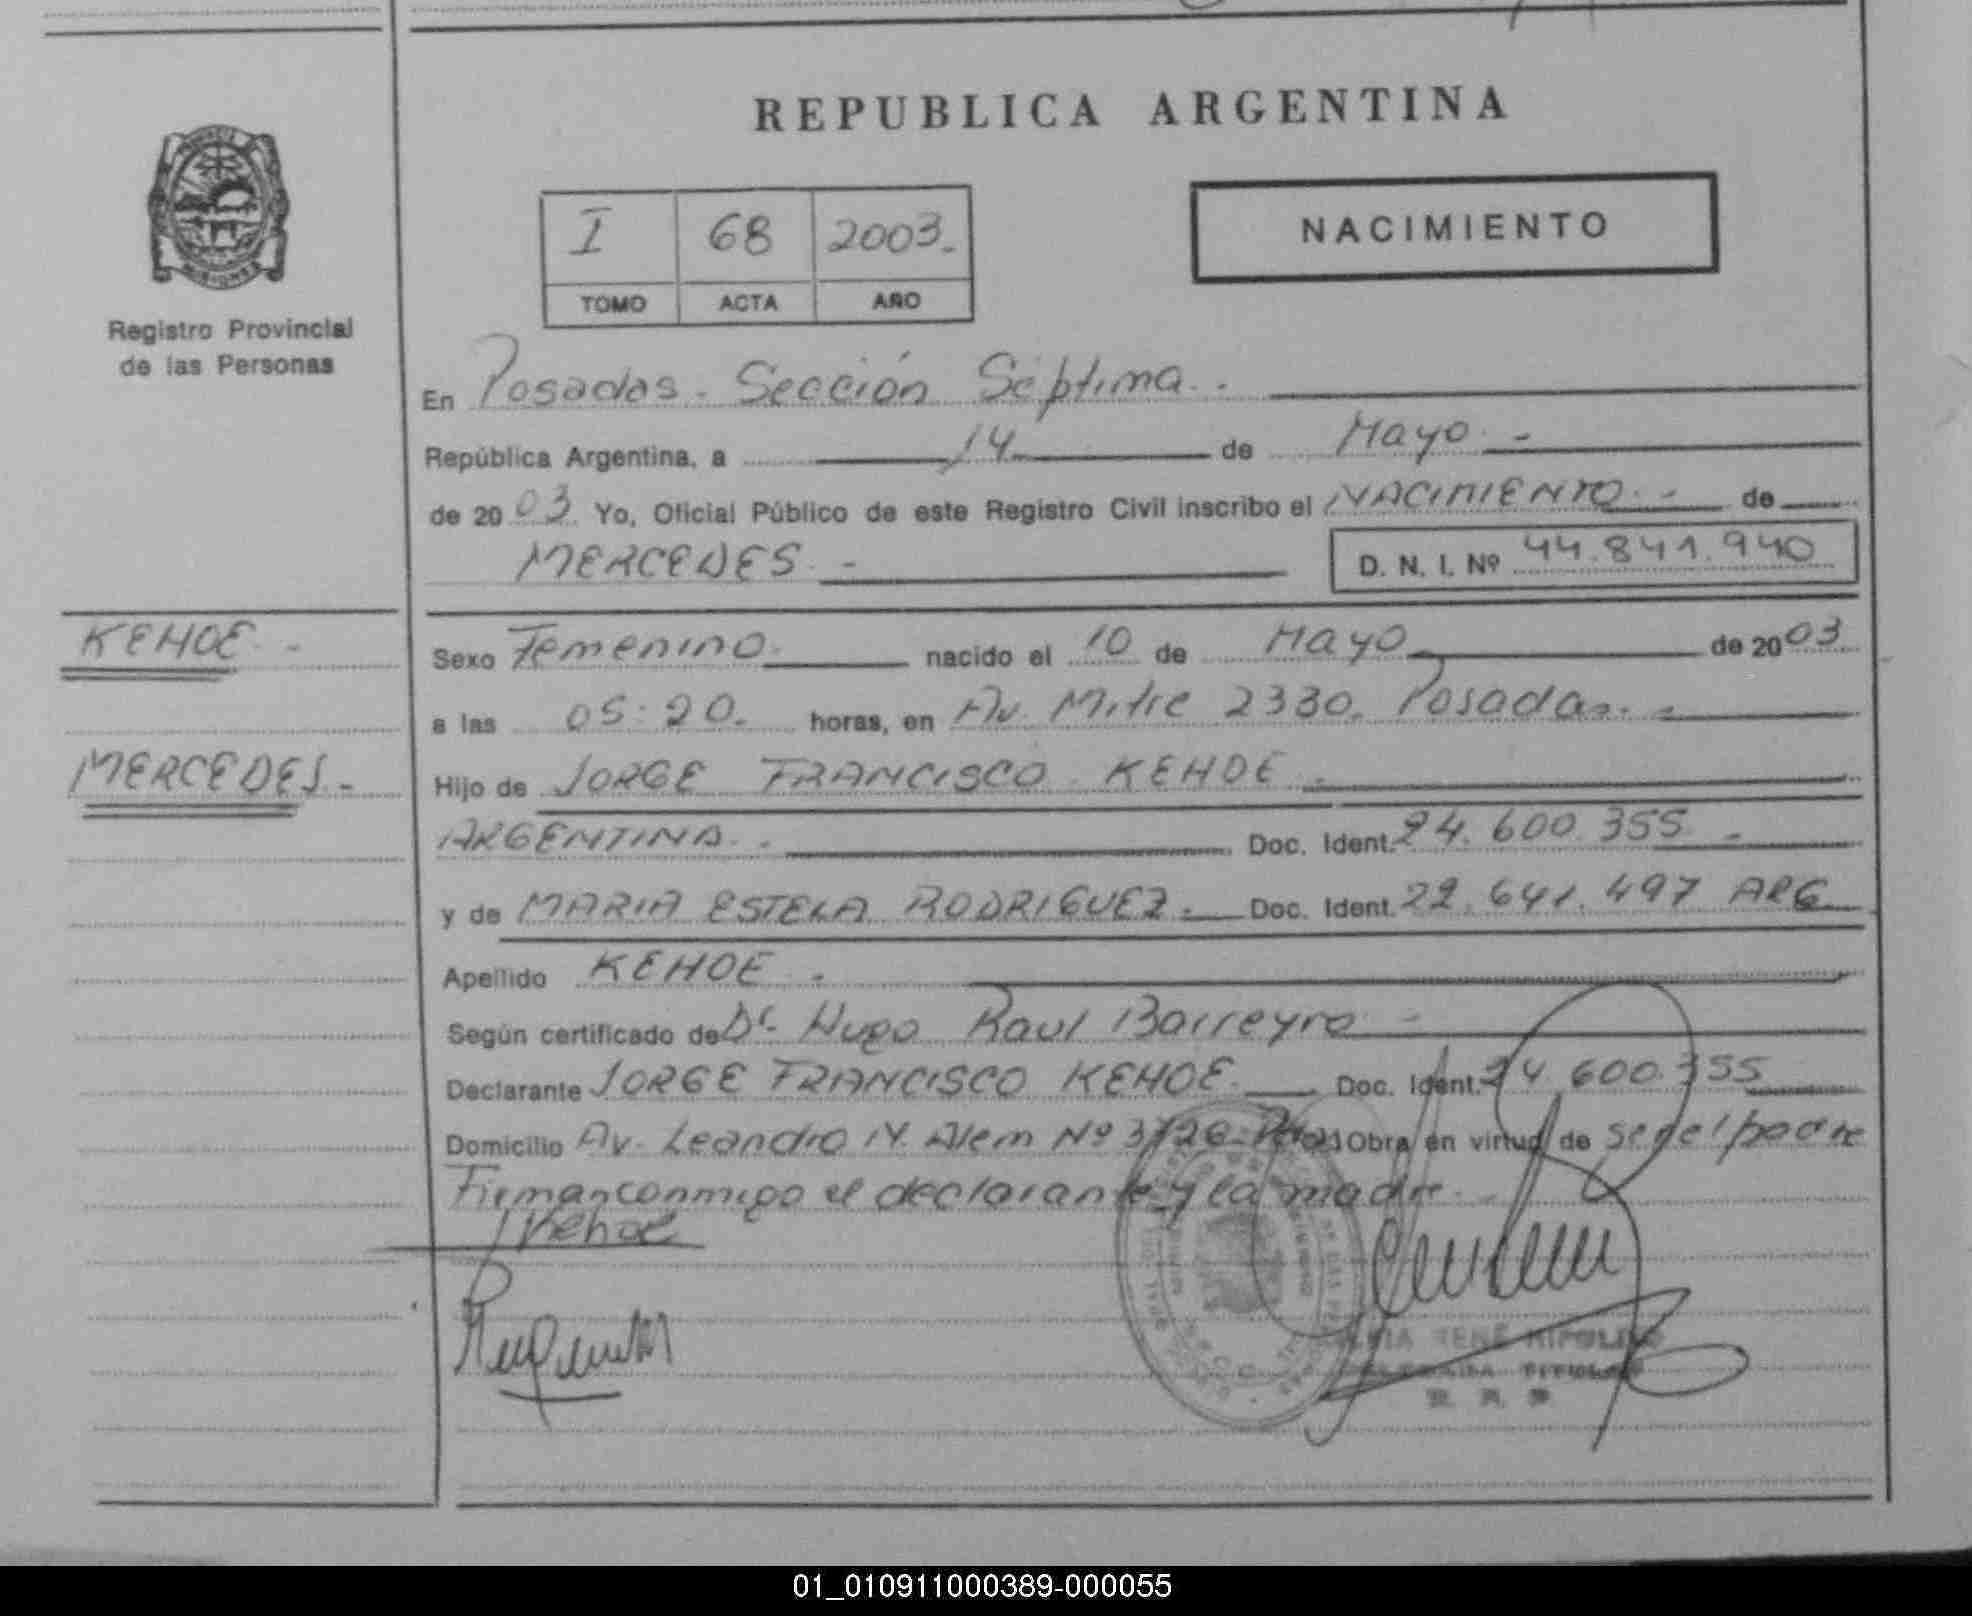 REPUBLICA ARGENTINA
NACIMIENTO
I 68 2003.
TOMO ACTA AÑO
Registro Provincial
de las Personas
En Posadas. Sección Séptima.
República Argentina, a 14 de Mayo
de 2003 Yo, Oficial Público de este Registro Civil inscribo el NACIMIENTO de
MERCEDES D. N. I. Nº 44.841.940
KEHOE
MERCEDES
Sexo Femenino nacido el 10 de Mayo de 2003
a las 05:20. horas, en Av. Mitre 2330. Posadas.
Hijo de JORGE FRANCISCO KEHOE
ARGENTINA. Doc. Ident. 24.600.355
y de MARIA ESTELA RODRIGUEZ. Doc. Ident. 22.641.497 ARG
Apellido KEHOE
Según certificado de Dr. Hugo Raul Barreyro
Declarante JORGE FRANCISCO KEHOE Doc. Ident. 24.600.355
Domicilio Av. Leandro N. Alem Nº 3726 Obra en virtud de ser el padre
Firman conmigo el declarante y la madre.
Kehoe
RENÉ HIPOLITO
TITULAR
01_010911000389-000055